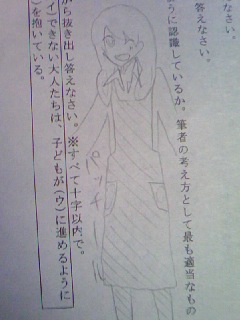 さい。
答えなさい。
うに認識しているか。筆者の考え方として最も適当なもの
から抜き出し答えなさい。※すべて十字以内で。
イ)できない大人たちは、子どもが(ウ)に進めるように
)を抱いている。